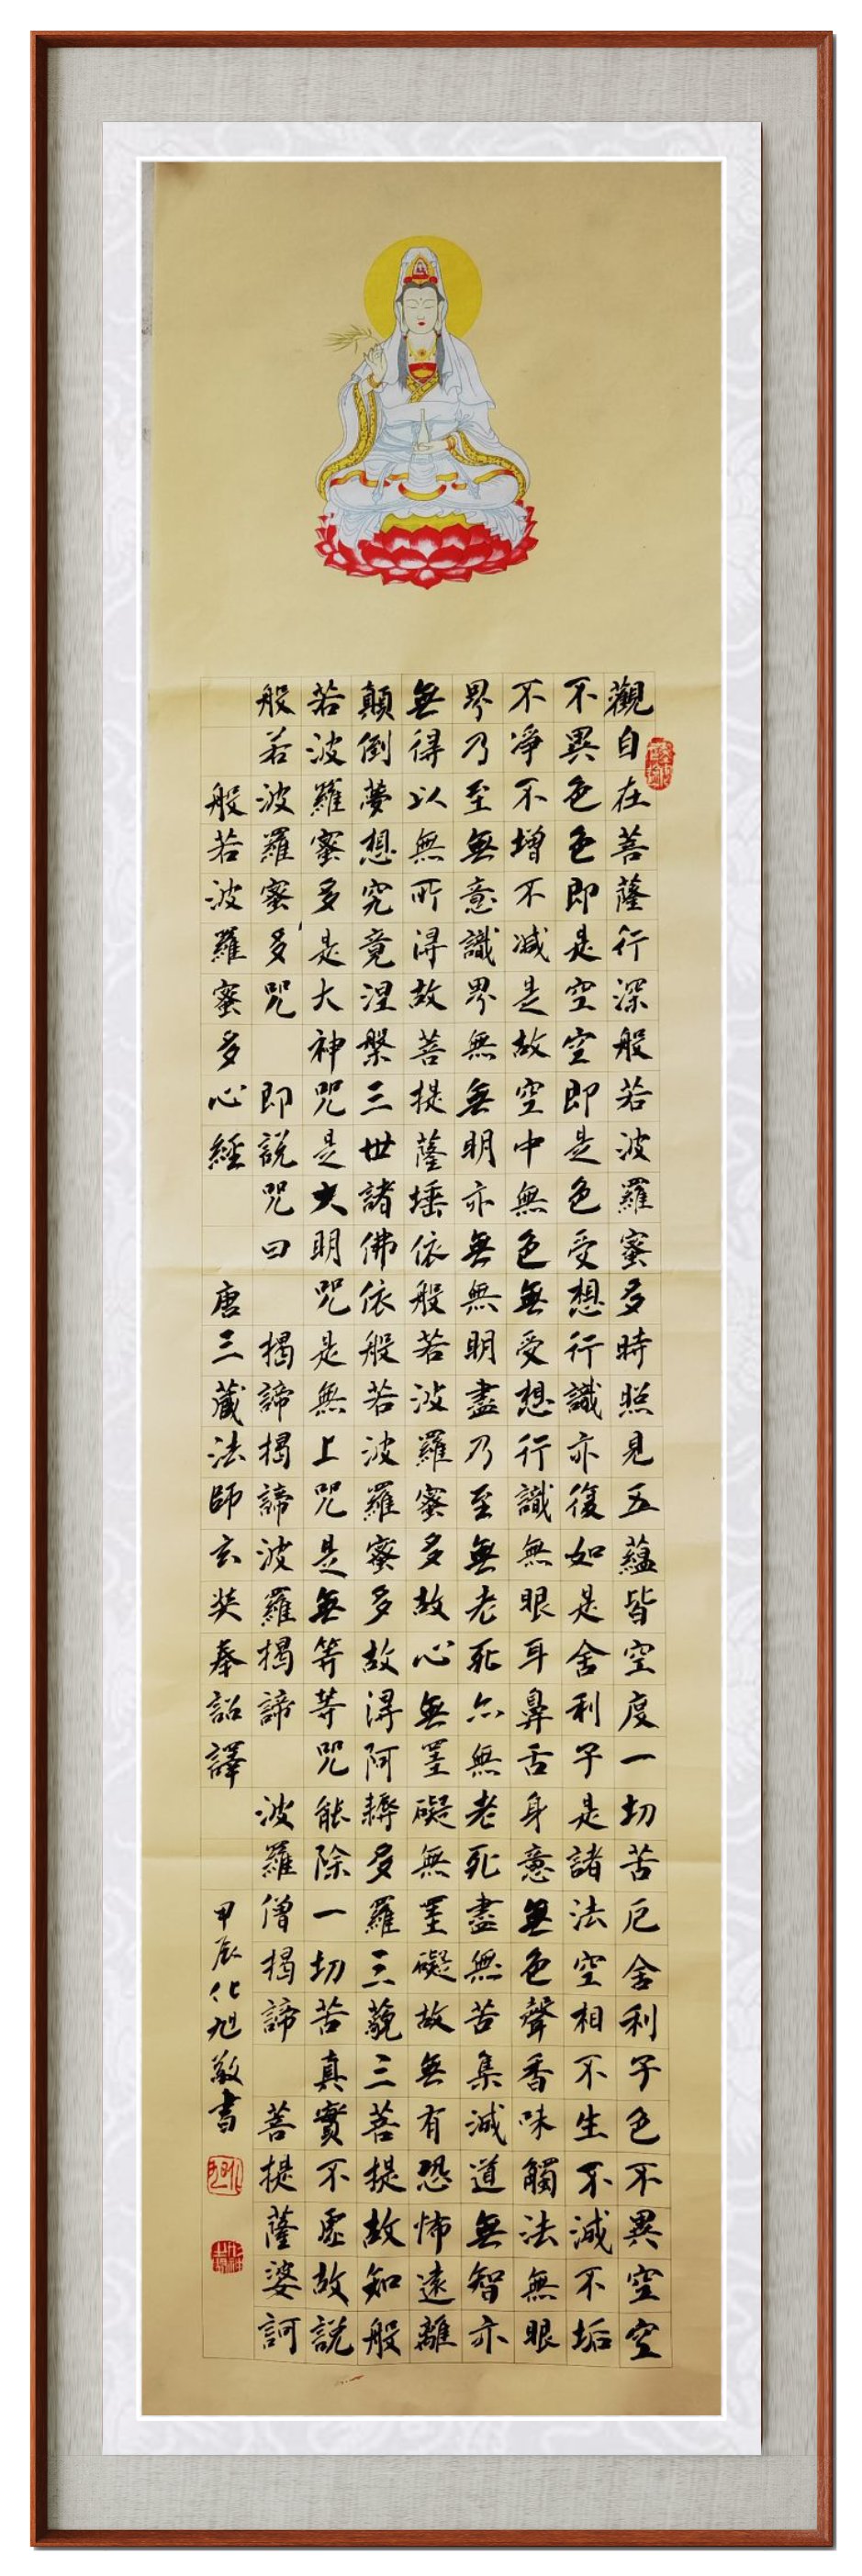 觀自在菩薩行深般若波羅蜜多時照見五蘊皆空度一切苦厄舍利子色不異空空
不異色色即是空空即是色受想行識亦復如是舍利子是諸法空相不生不滅不垢
不凈不增不減是故空中無色無受想行識無眼耳鼻舌身意無色聲香味觸法無眼
界乃至無意識界無無明亦無無明盡乃至無老死亦無老死盡無苦集滅道無智亦
無得以無所得故菩提薩埵依般若波羅蜜多故心無罣礙無罣礙故無有恐怖遠離
顛倒夢想究竟涅槃三世諸佛依般若波羅蜜多故得阿耨多羅三藐三菩提故知般
若波羅蜜多是大神咒是大明咒是無上咒是無等等咒能除一切苦真實不虛故說
般若波羅蜜多咒 即說咒曰 揭諦揭諦波羅揭諦 波羅僧揭諦 菩提薩婆訶
般若波羅蜜多心經 唐三藏法師玄奘奉詔譯
甲辰化旭敬書